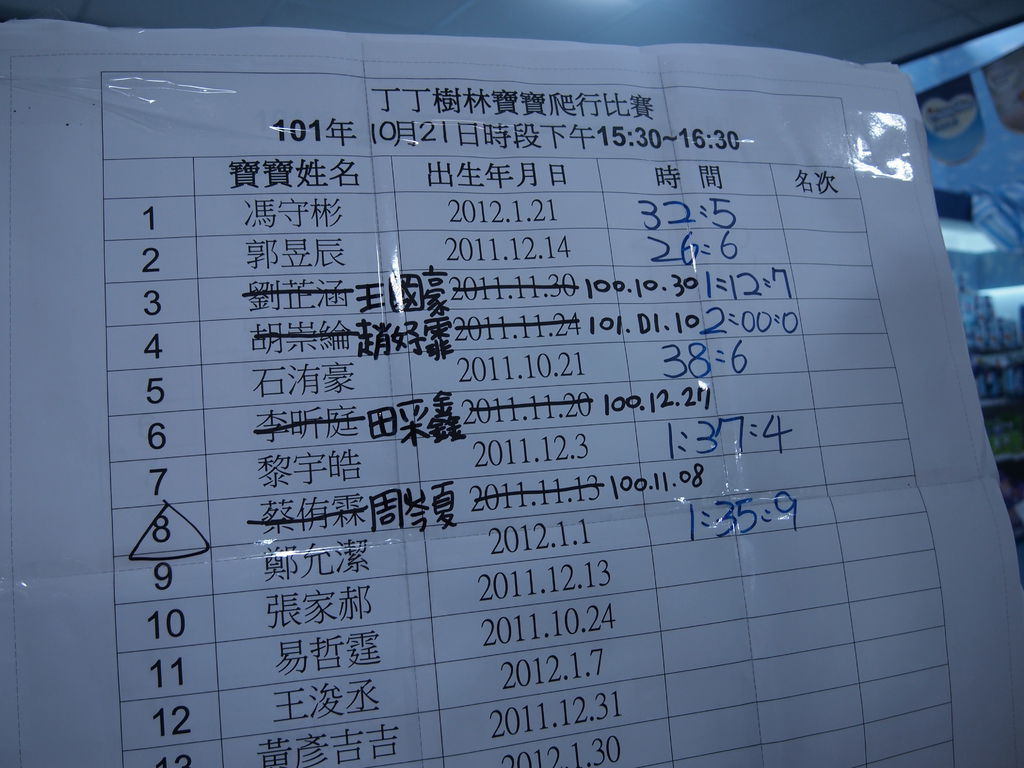 丁丁樹林寶寶爬行比賽
101年 10月21日時段下午15:30~16:30
寶寶姓名 出生年月日 時 間 名次
1 馮守彬 2012.1.21 32:5
2 郭昱辰 2011.12.14 26:6
3 劉芷涵 王國豪 2011.11.30 100.10.30 1:12:7
4 胡崇綸 趙妤霏 2011.11.24 101.01.10 2:00:0
5 石洧豪 2011.10.21 38:6
6 李昕庭 田采鑫 2011.11.20 100.12.27
7 黎宇皓 2011.12.3 1:37:4
8 蔡侑霖 周岑夏 2011.11.13 100.11.08
9 鄭允潔 2012.1.1 1:35:9
10 張家郝 2011.12.13
11 易哲霆 2011.10.24
12 王浚丞 2012.1.7
13 黃彥吉吉 2011.12.31
2012.1.30